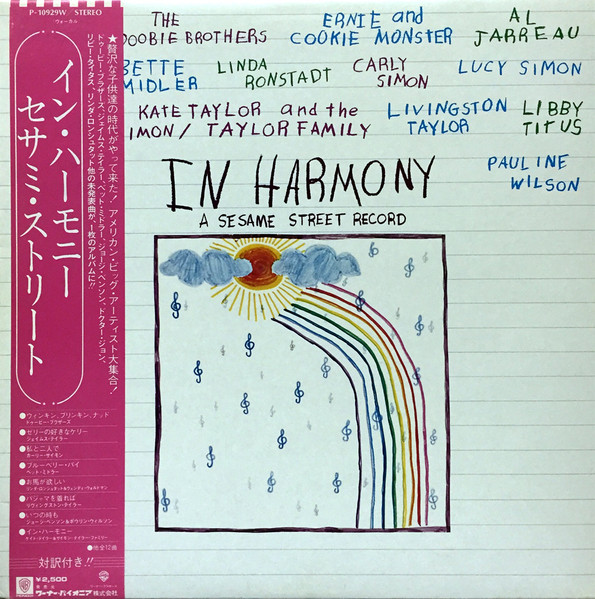 P-10929W STEREO
(ヴォーカル)
イン・ハーモニー
セサミ・ストリート
★贅沢な子供達の時代がやって来た！ アメリカン・ビッグ・アーティスト大集合！
ドゥービー・ブラザーズ、ジェイムス・テイラー、ベット・ミドラー、ジョージ・ベンソン、ドクター・ジョン、
リビー・タイタス、リンダ・ロンシュタット他の未発表曲が、1枚のアルバムに!!
●ウィンキン、ブリンキン、ナッド
ドゥービー・ブラザーズ
●ゼリーの好きなケリー
ジェイムス・テイラー
●私と二人で
カーリー・サイモン
●ブルーベリー・パイ
ベット・ミドラー
●お馬が欲しい
リンダ・ロンシュタット&ウェンディ・ウォルドマン
●パジャマを着れば
リヴィングストン・テイラー
●いつの時も
ジョージ・ベンソン&ポウリン・ウィルソン
●イン・ハーモニー
ケイト・テイラー&サイモン・テイラー・ファミリー
●他全12曲
対訳付き!!
¥2,500
ワーナー・パイオニア株式会社
THE
DOOBIE BROTHERS
ERNIE and
COOKIE MONSTER
AL
JARREAU
BETTE
MIDLER
LINDA
RONSTADT
CARLY
SIMON
LUCY SIMON
KATE TAYLOR and the
IMON/TAYLOR FAMILY
LIVINGSTON
TAYLOR
LIBBY
TITUS
PAULINE
WILSON
IN HARMONY
A SESAME STREET RECORD